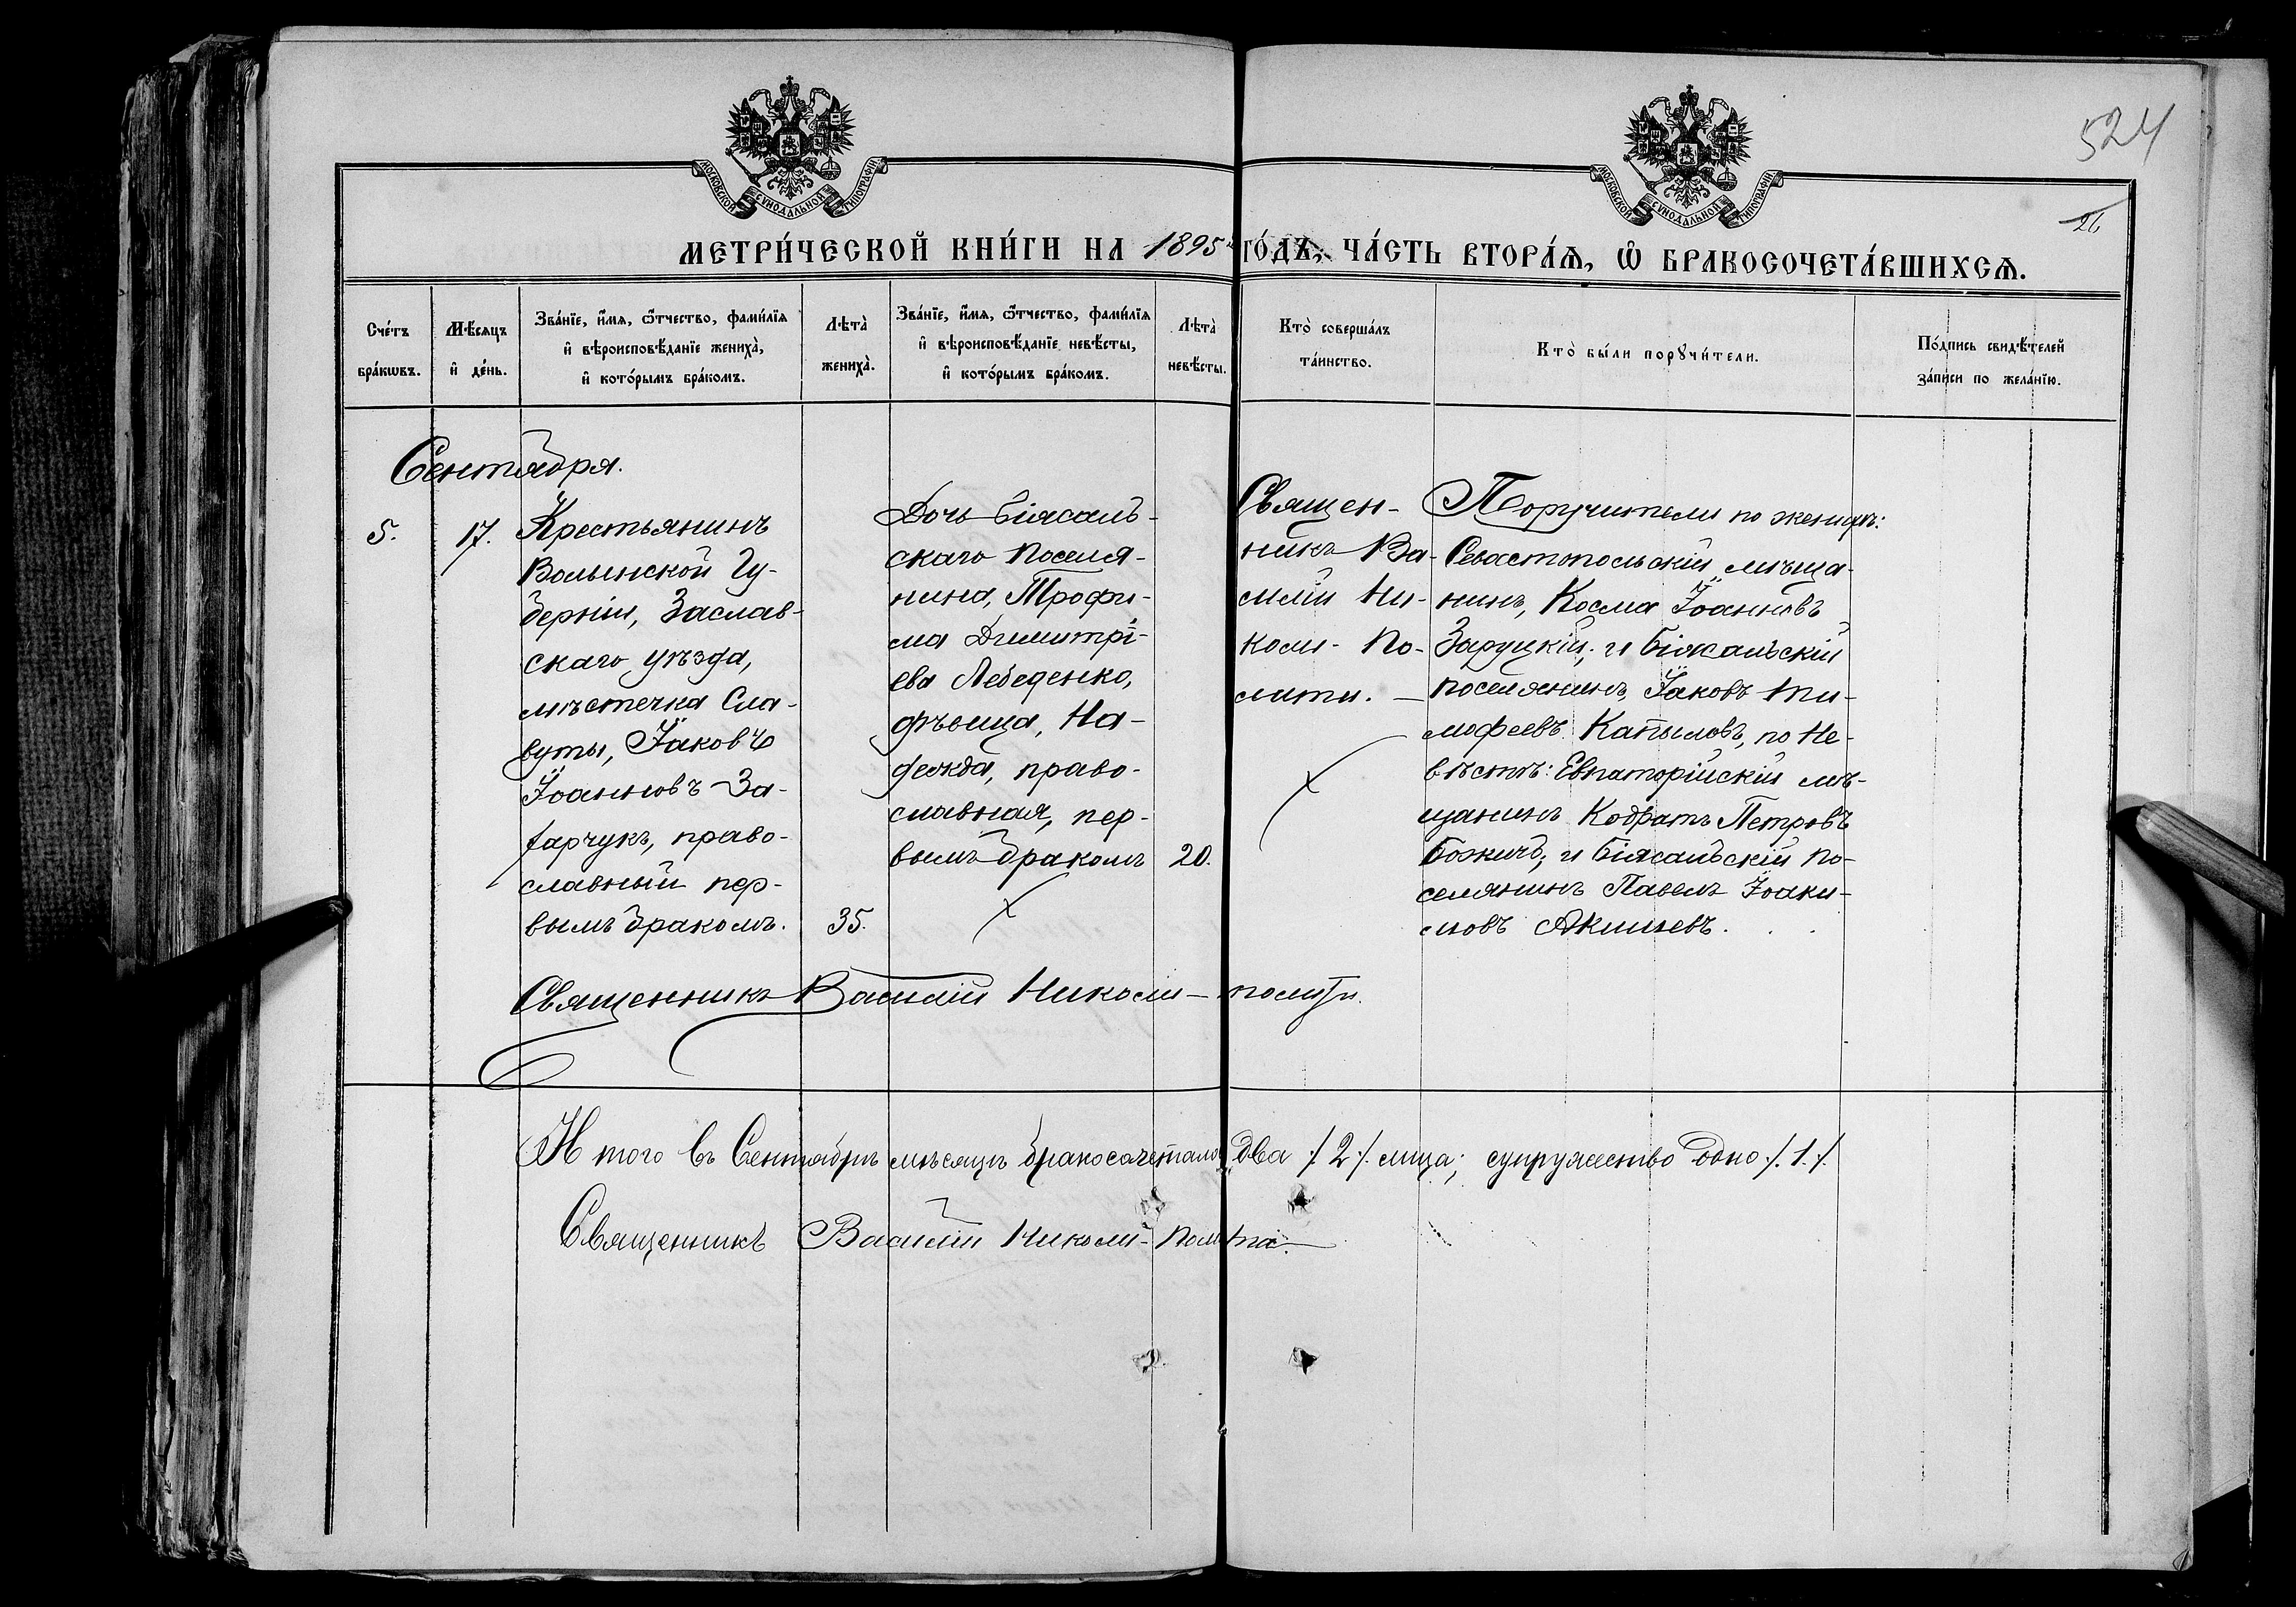 524
26
МОСКОВСКОЙ СУНОДАЛЬНОЙ ТИПОГРАФІИ
МОСКОВСКОЙ СУНОДАЛЬНОЙ ТИПОГРАФІИ
МЕТРИ́ЧЕСКОЙ КНИ́ГИ НА 1895 ГО́ДЪ, ЧА́СТЬ ВТОРА́Ѧ, Ѡ҆ БРАКОСОЧЕТА́ВШИХСѦ.
Сче́тъ
бра́кѡвъ.
Мѣ́сѧцъ
и҆ де́нь.
Зва́нїе, и҆́мѧ, ѻ҆́тчество, фами́лїѧ
и҆ вѣроисповѣ́данїе жениха̀,
и҆ кото́рымъ бра́комъ.
Лѣта̀
жениха̀.
Зва́нїе, и҆́мѧ, ѻ҆́тчество, фами́лїѧ
и҆ вѣроисповѣ́данїе невѣ́сты,
и҆ кото́рымъ бра́комъ.
Лѣта̀
невѣ́сты.
Кто̀ соверша́лъ
та́инство.
Кто̀ бы́ли порꙋчи́тели.
По́дпись свидѣ́телей
за́писи по жела́нїю.
Сентября.
5.
17.
Крестьянинъ
Волынской Гу-
берніи, Заслав-
скаго уѣзда,
мѣстечка Сла-
вуты, Іаковъ
Іоанновъ За-
харчукъ, право-
славный пер-
вымъ бракомъ.
35.
Дочь Біясаль-
скаго поселя-
нина, Трофи-
ма Димитрі-
ева Лебеденко,
дѣвица, На-
дежда, право-
славная, пер-
вымъ бракомъ
20.
Священ-
никъ Ва-
силій Ни-
коли-По-
лити.
Поручители по женихѣ:
Севастопольскій мѣща-
нинъ, Косма Іоанновъ
Заруцкій; и Біясальскій
поселянинъ, Іаковъ Ти-
мофеевъ Капыловъ, по Не-
вѣстѣ: Евпаторійскій мѣ-
щанинъ Кодратъ Петровъ
Божичъ; и Біясальскій по-
селянинъ Павелъ Іоаки-
мовъ Акишевъ.
Священникъ Василій Николи-полити.
Итого въ Сентябрѣ мѣсяцѣ бракосочеталось два /2/. лица; супружество одно /.1./.
Священникъ Василій Николи-Полити.